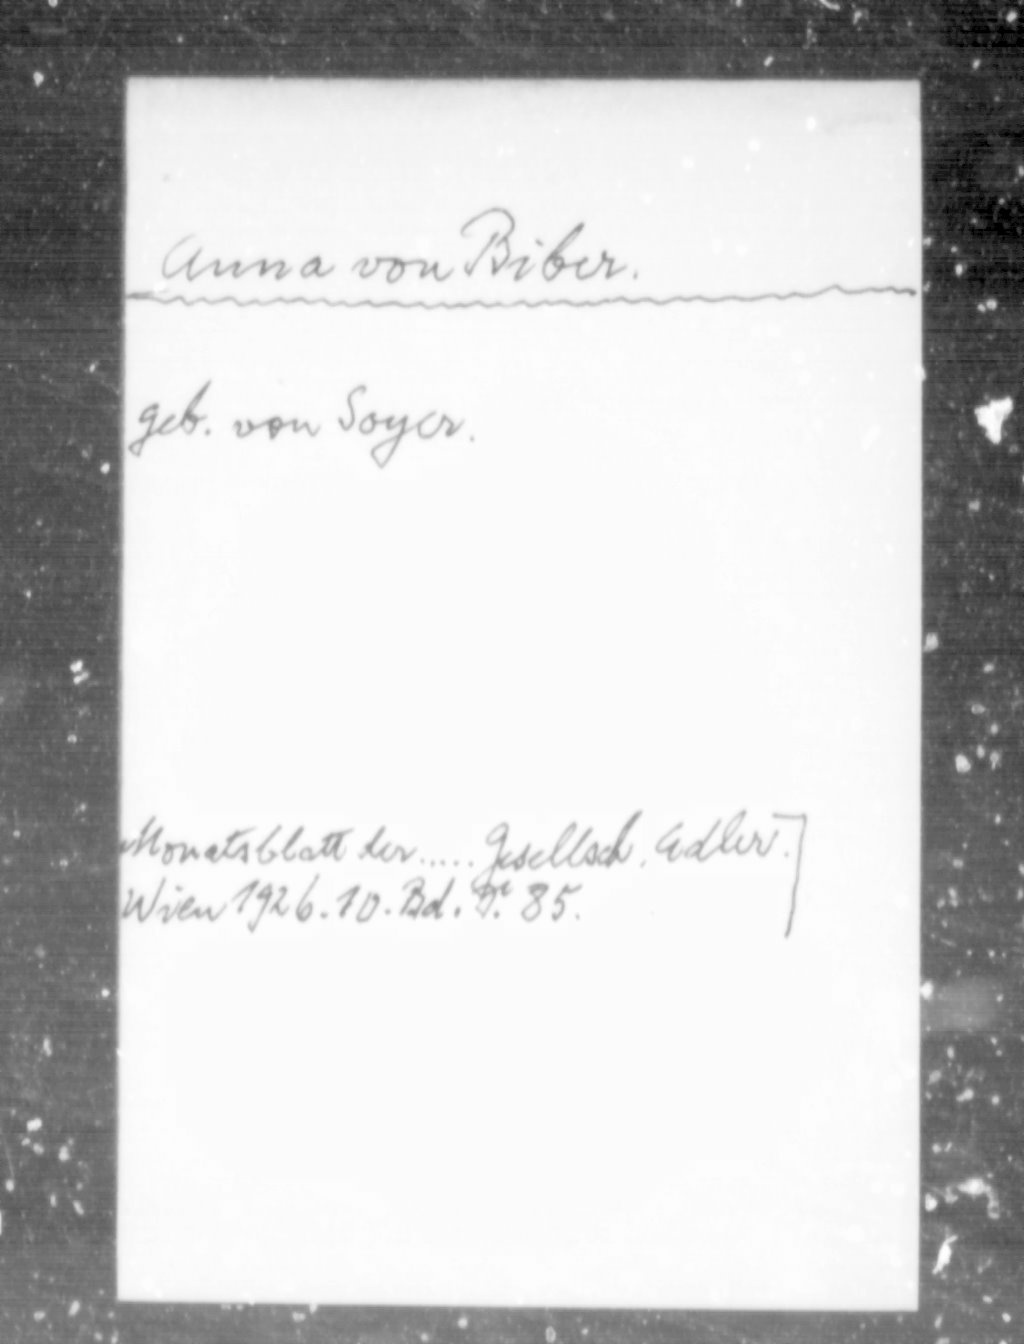 Anna von Biber.
geb. von Soyer.
Monatsblatt der ..... Gesellsch. Adler.
Wien 1926. 10. Bd. S. 85.